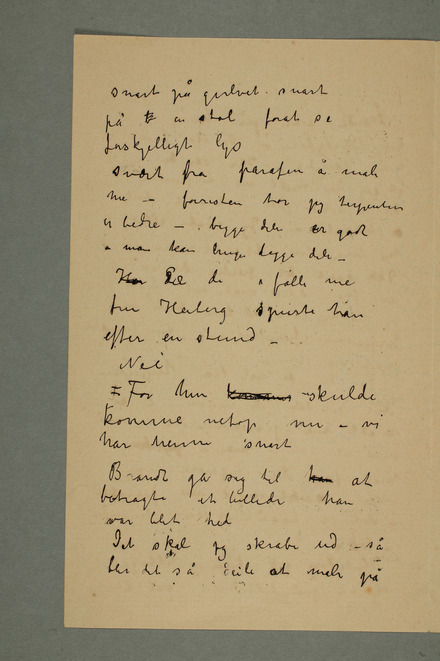 snart på gulvet. snart
på en stol forat se
forskjelligt lys
svært fra parafen å male
me – forresten tror jeg terpentin
er bedre –. begge dele er godt
man kan bruge begge dele –
De de a følle me
fru Heiberg spurte han
efter en stund –
Nei
= For hun skulde
komme netop nu – vi
har henne snart
Brandt ga seg til at
betragte et billede han
var blet hel
Det skal jeg skrabe ud – så
ble det så deile at male på